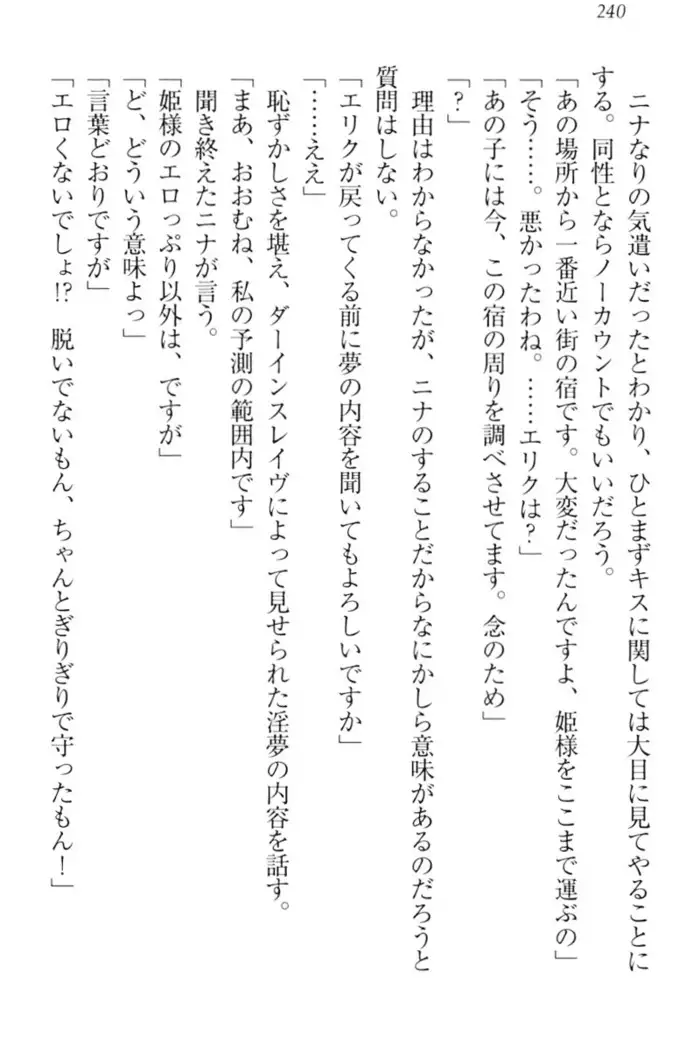 240
ニナなりの気遣いだったとわかり、ひとまずキスに関しては大目に見てやることに
する。同性とならノーカウントでもいいだろう。
「あの場所から一番近い街の宿です。大変だったんですよ、姫様をここまで運ぶの」
「そう……。悪かったわね。……エリクは?」
「あの子には今、この宿の周りを調べさせてます。念のため」
「?」
理由はわからなかったが、ニナのすることだからなにかしら意味があるのだろうと
質問はしない。
「エリクが戻ってくる前に夢の内容を聞いてもよろしいですか」
「……ええ」
恥ずかしさを堪え、ダーインスレイヴによって見せられた淫夢の内容を話す。
「まあ、おおむね、私の予測の範囲内です」
聞き終えたニナが言う。
「姫様のエロっぷり以外は、ですが」
「ど、どういう意味よっ」
「言葉どおりですが」
「エロくないでしょ!? 脱いでないもん、ちゃんとぎりぎりで守ったもん!」